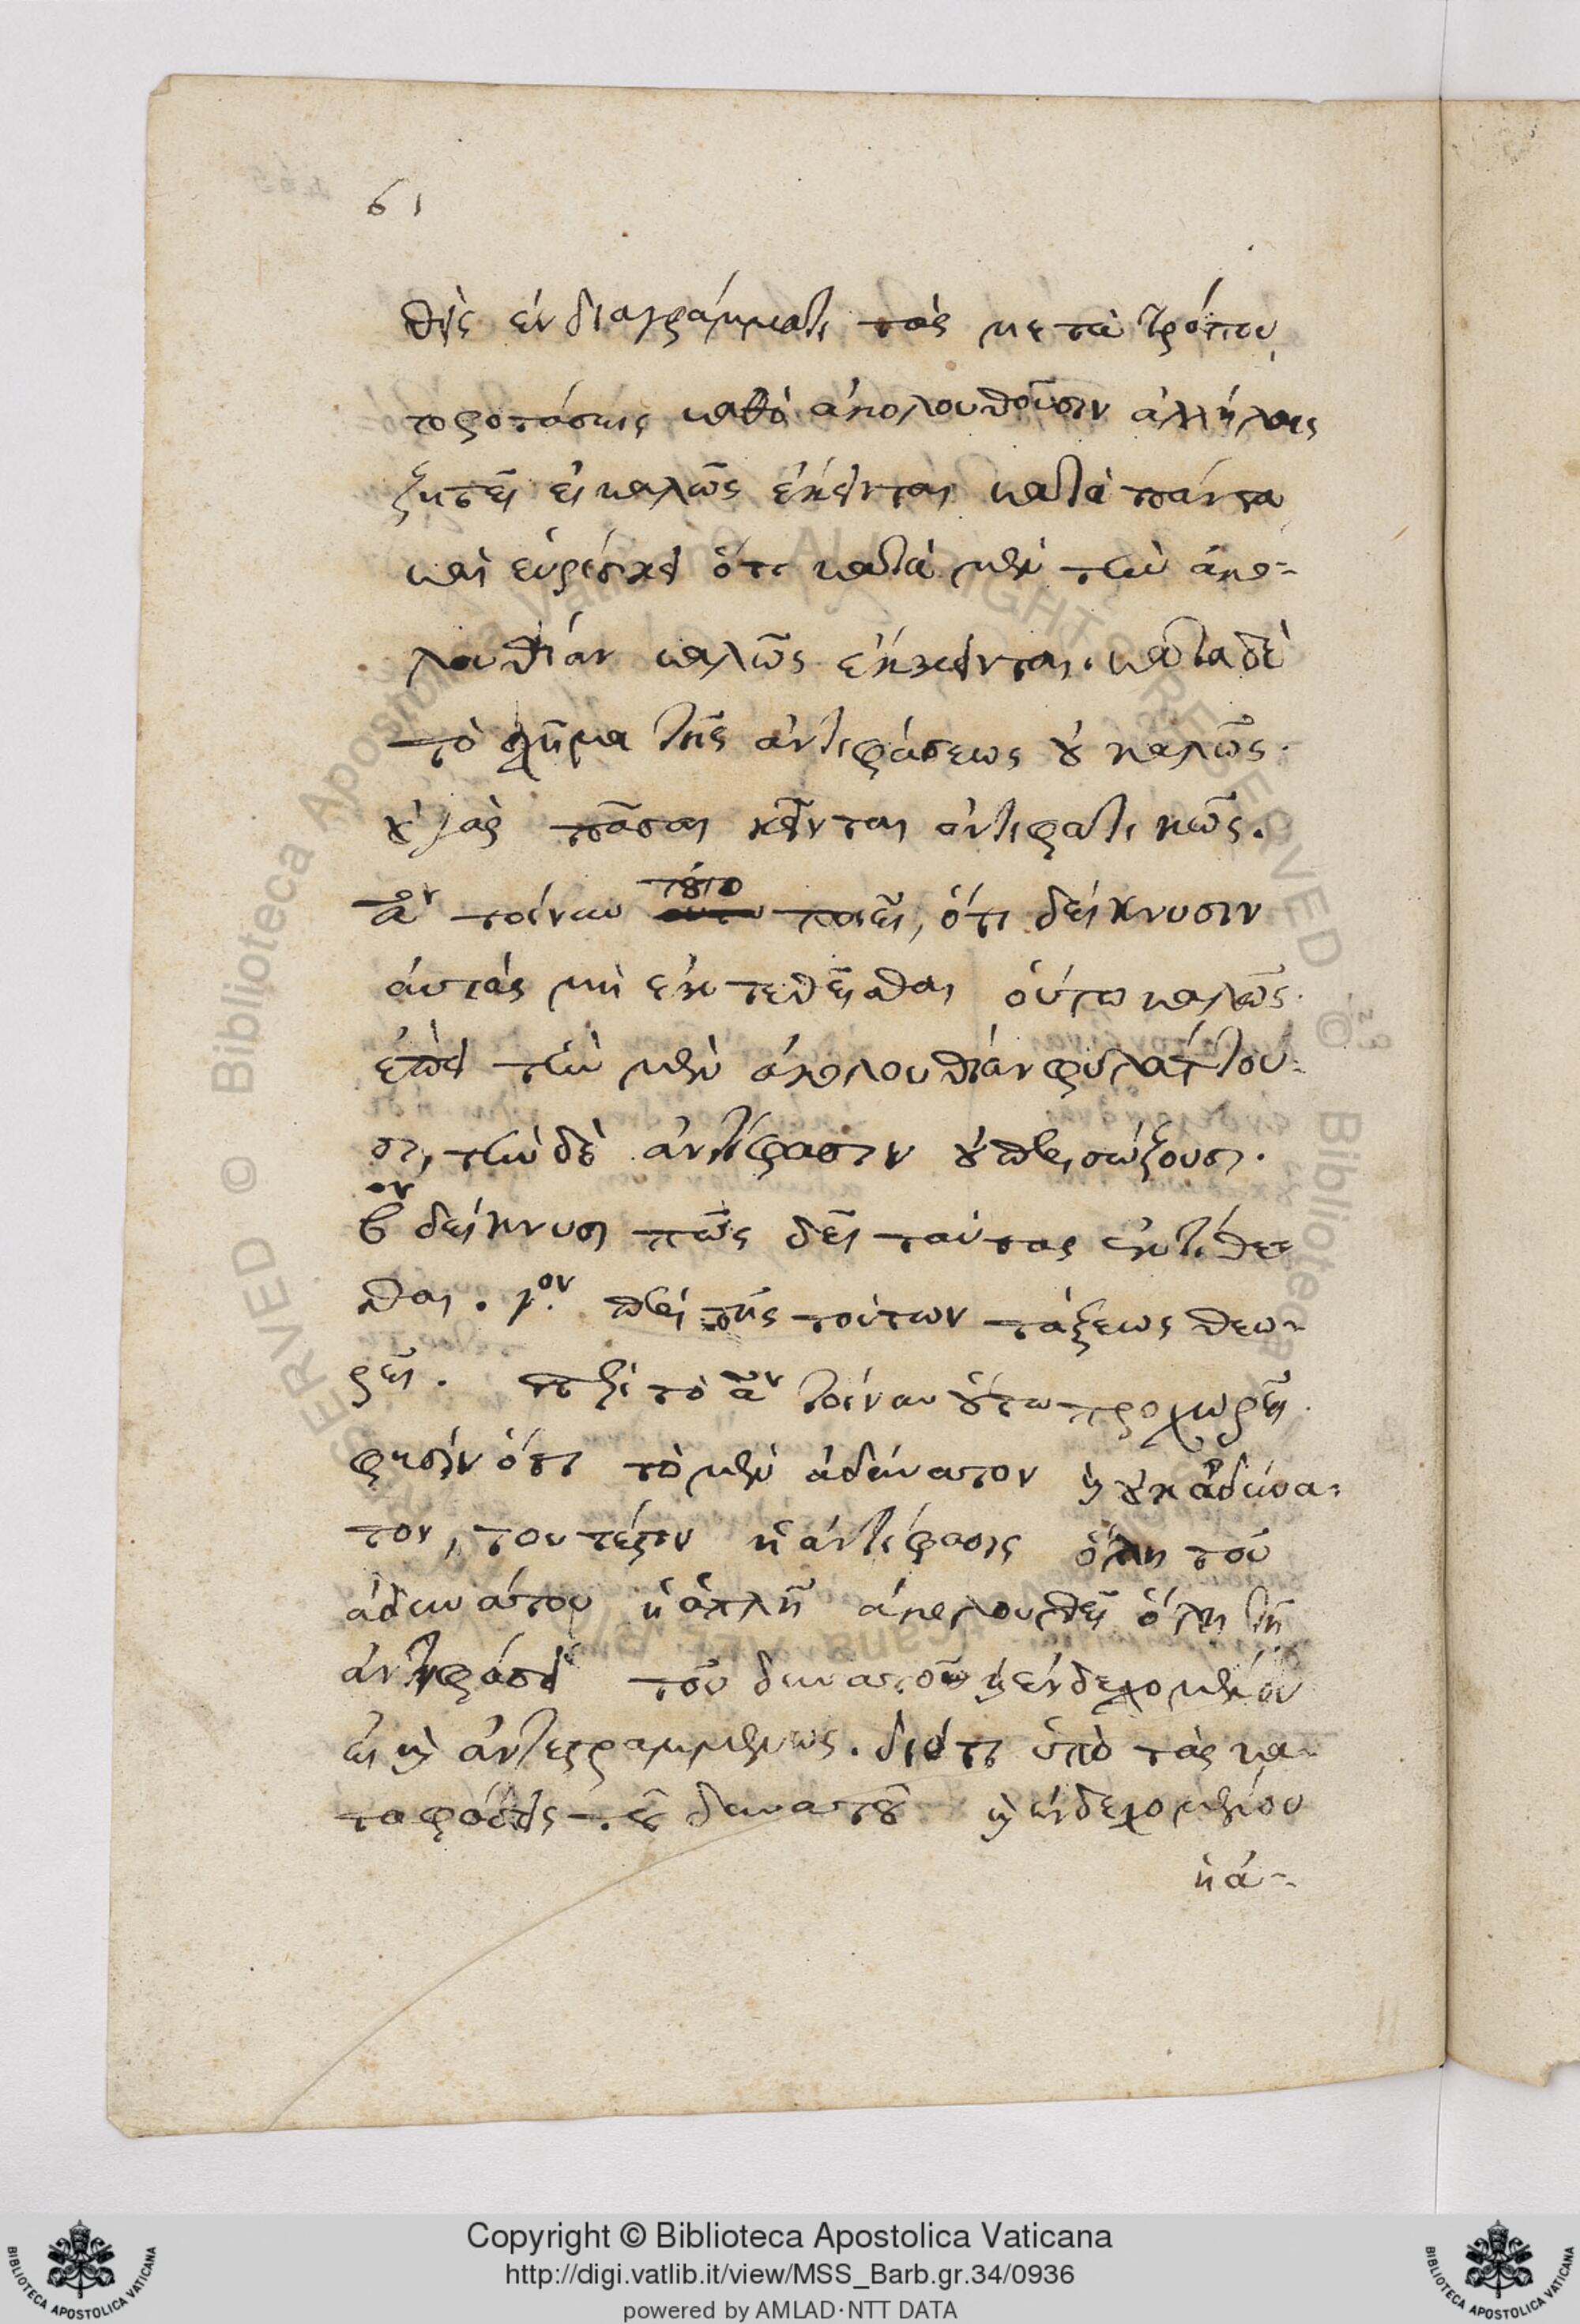 61
θεὶς ἐν διαγράμματι τὰς μετὰ τρόπου
προτάσεις καθὸ ἀκολουθοῦσιν ἀλλήλαις
ζητεῖ εἰ καλῶς ἔκκεινται κατὰ πάντα
καὶ εὑρίσκει ὅτι κατὰ μὲν τὴν ἀκο-
λουθίαν καλῶς ἔκκεινται. κατὰ δὲ
τὸ σχῆμα τῆς ἀντιφάσεως οὐ καλῶς.
οὐ γὰρ πᾶσαι κεῖνται ἀντιφατικῶς.
αον τοίνυν τοῦτο ποιεῖ, ὅτι δείκνυσιν
αὐτὰς μὴ ἐκτεθεῖσθαι οὕτω καλῶς.
ἐπεὶ τὴν μὲν ἀκολουθίαν φυλάττου-
σι, τὴν δὲ ἀντίφασιν οὐ περισώζουσι.
βον δείκνυσι πῶς δεῖ ταύτας ἐκτίθε-
σθαι. γον. περὶ τῆς τούτων τάξεως θεω-
ρεῖ. περὶ τὸ αον τοίνυν οὕτω προχωρεῖ.
φησὶν ὅτι τὸ μὲν ἀδύνατον καὶ οὐκ ἀδύνα-
τον, τουτέστιν ἡ ἀντίφασις ὅλη τοῦ
ἀδυνάτου ἡ ἁπλῆ ἀκολουθεῖ ὅλη τῇ
ἀντιφάσει τοῦ δυνατοῦ καὶ ἐνδεχομένου
εἰ καὶ ἀντεστραμμένως. διότι ὑπὸ τὰς κα-
ταφάσεις τοῦ δυνατοῦ καὶ ἐνδεχομένου
ἡ ἀ-
Copyright © Biblioteca Apostolica Vaticana
http://digi.vatlib.it/view/MSS_Barb.gr.34/0936
powered by AMLAD·NTT DATA